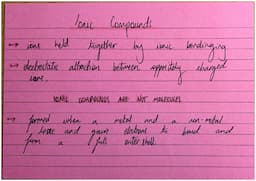 Ionic Compounds
→ ions held together by ionic bondinging
→ electrostatic attraction between oppositely charged
ions.
IONIC COMPOUNDS ARE NOT MOLECULES
→ formed when a metal and a non-metal
lose and gain electrons to bond and
form a full outer shell.